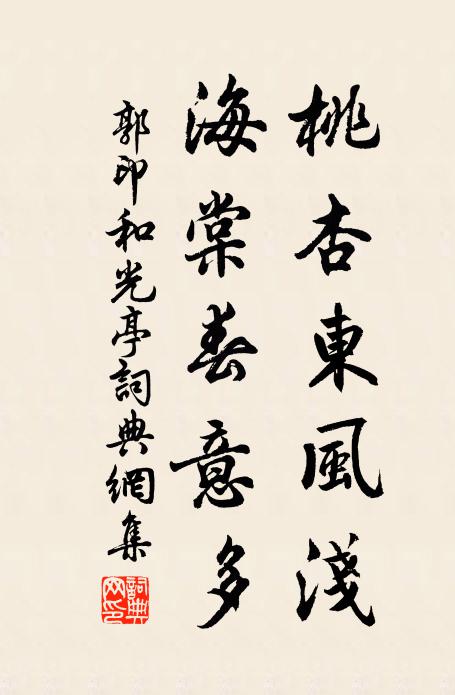 桃杏東風淺
海棠春意多
郭印和光亭詞典網集
詞典網印